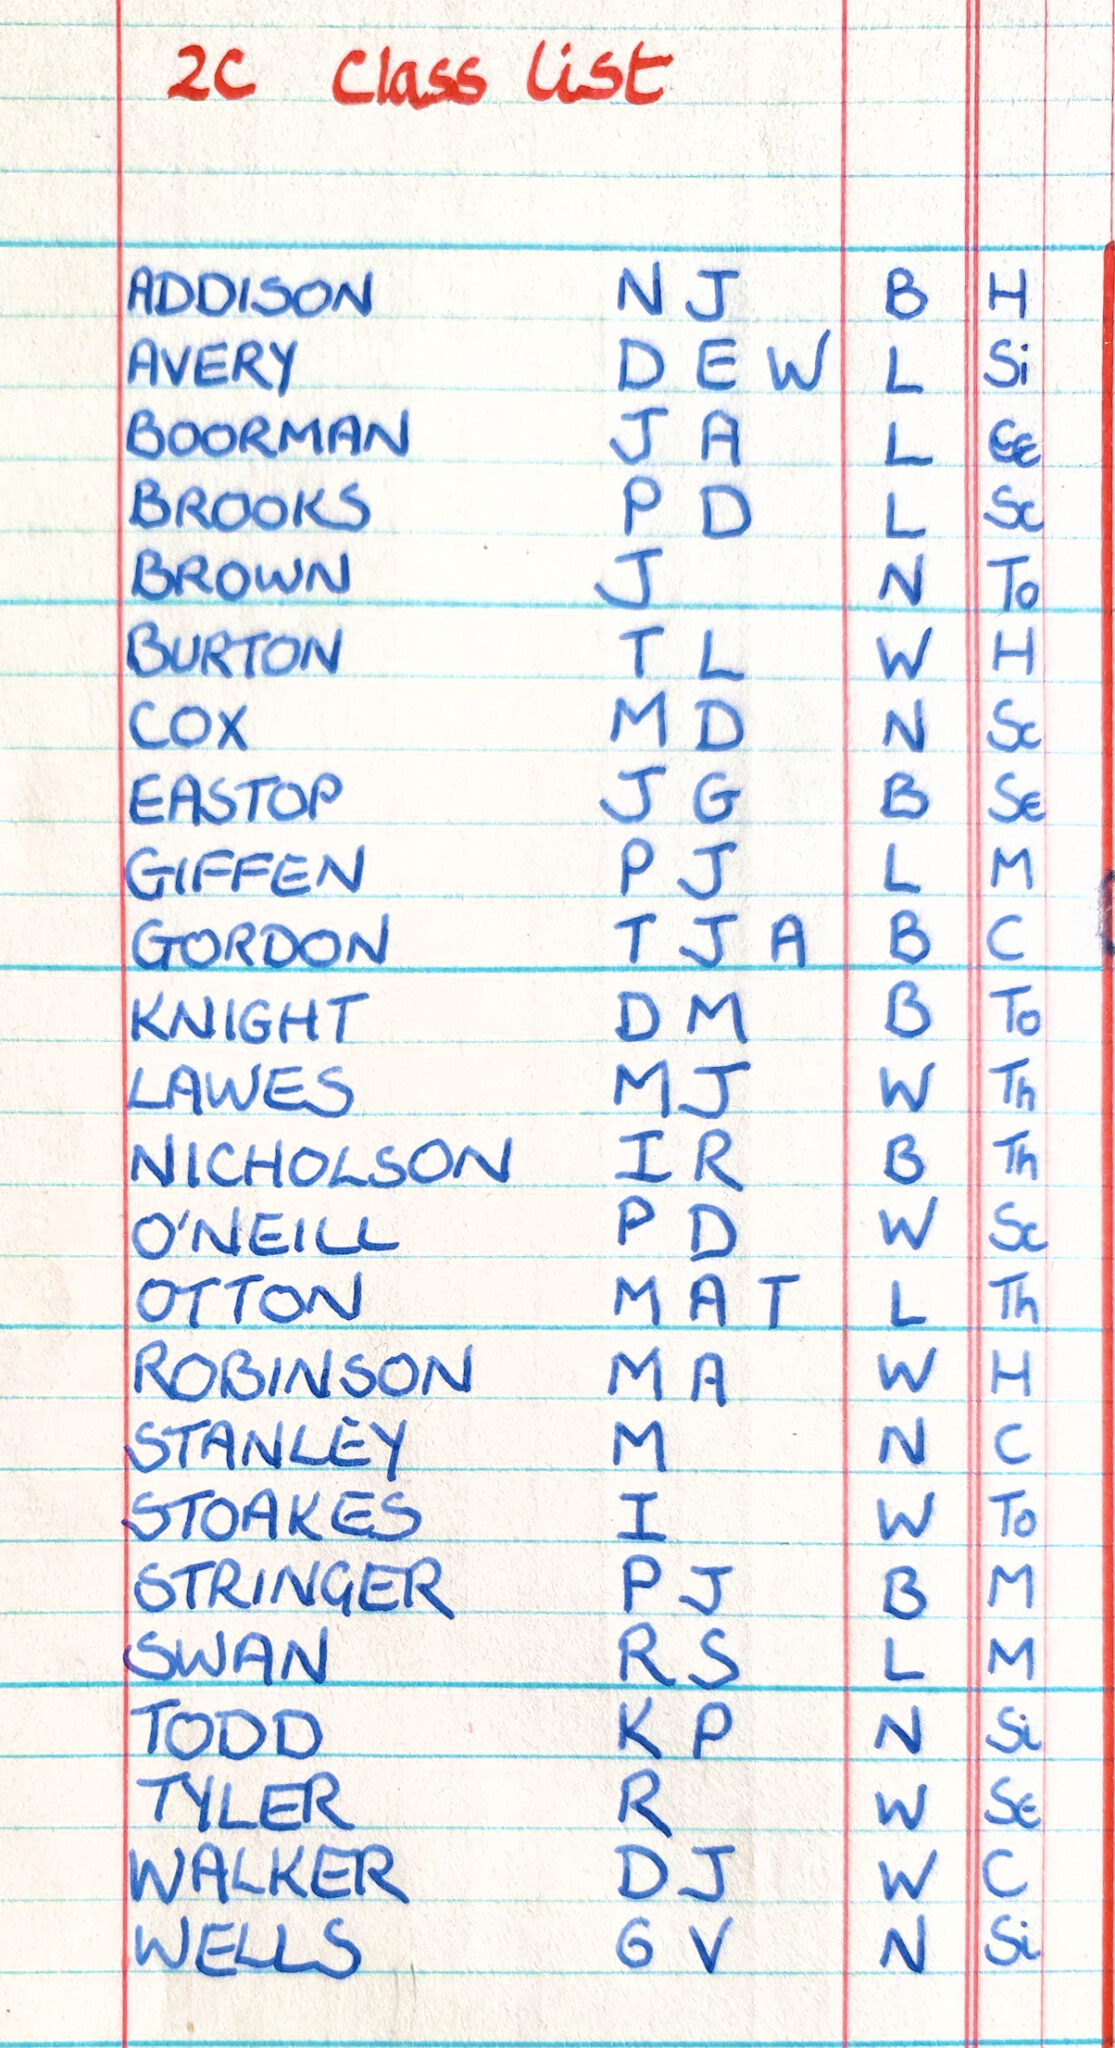 2C Class list
ADDISON N J B H
AVERY D E W L Si
BOORMAN J A L
BROOKS P D L Sc
BROWN J N To
BURTON T L W H
COX M D N Sc
EASTOP J G B Se
GIFFEN P J L M
GORDON T J A B C
KNIGHT D M B To
LAWES M J W Th
NICHOLSON I R B Th
O'NEILL P D W Sc
OTTON M A T L Th
ROBINSON M A W H
STANLEY M N C
STOAKES I W To
STRINGER P J B M
SWAN R S L M
TODD K P N Si
TYLER R W Se
WALKER D J W C
WELLS G V N Si